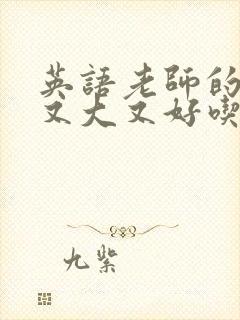 英語老師的
又大又好喫
九紫